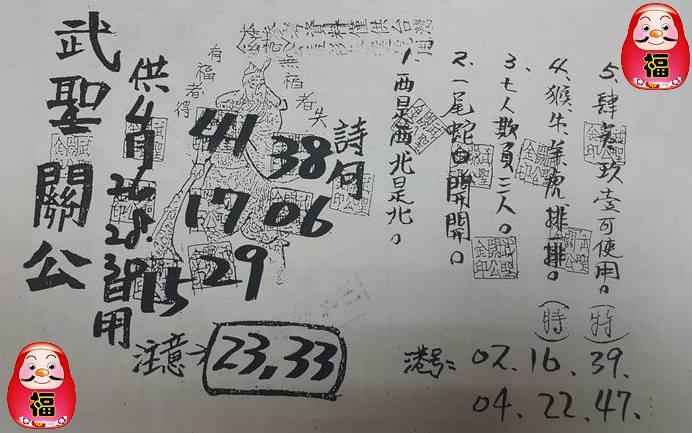 武聖關公
供4月26.28.30日用
有福者得
無福者失
41 38
17 06
15 29
詩句
1、西是西北是北。
2、一尾蛇 開開。
3、七人欺負三人。
4、猴、牛、羊虎排排。(特)
5、肆 玖壹可使用。(特)
注意→ 23,33
港号: 02、16、39、
04、22、47、
福
福